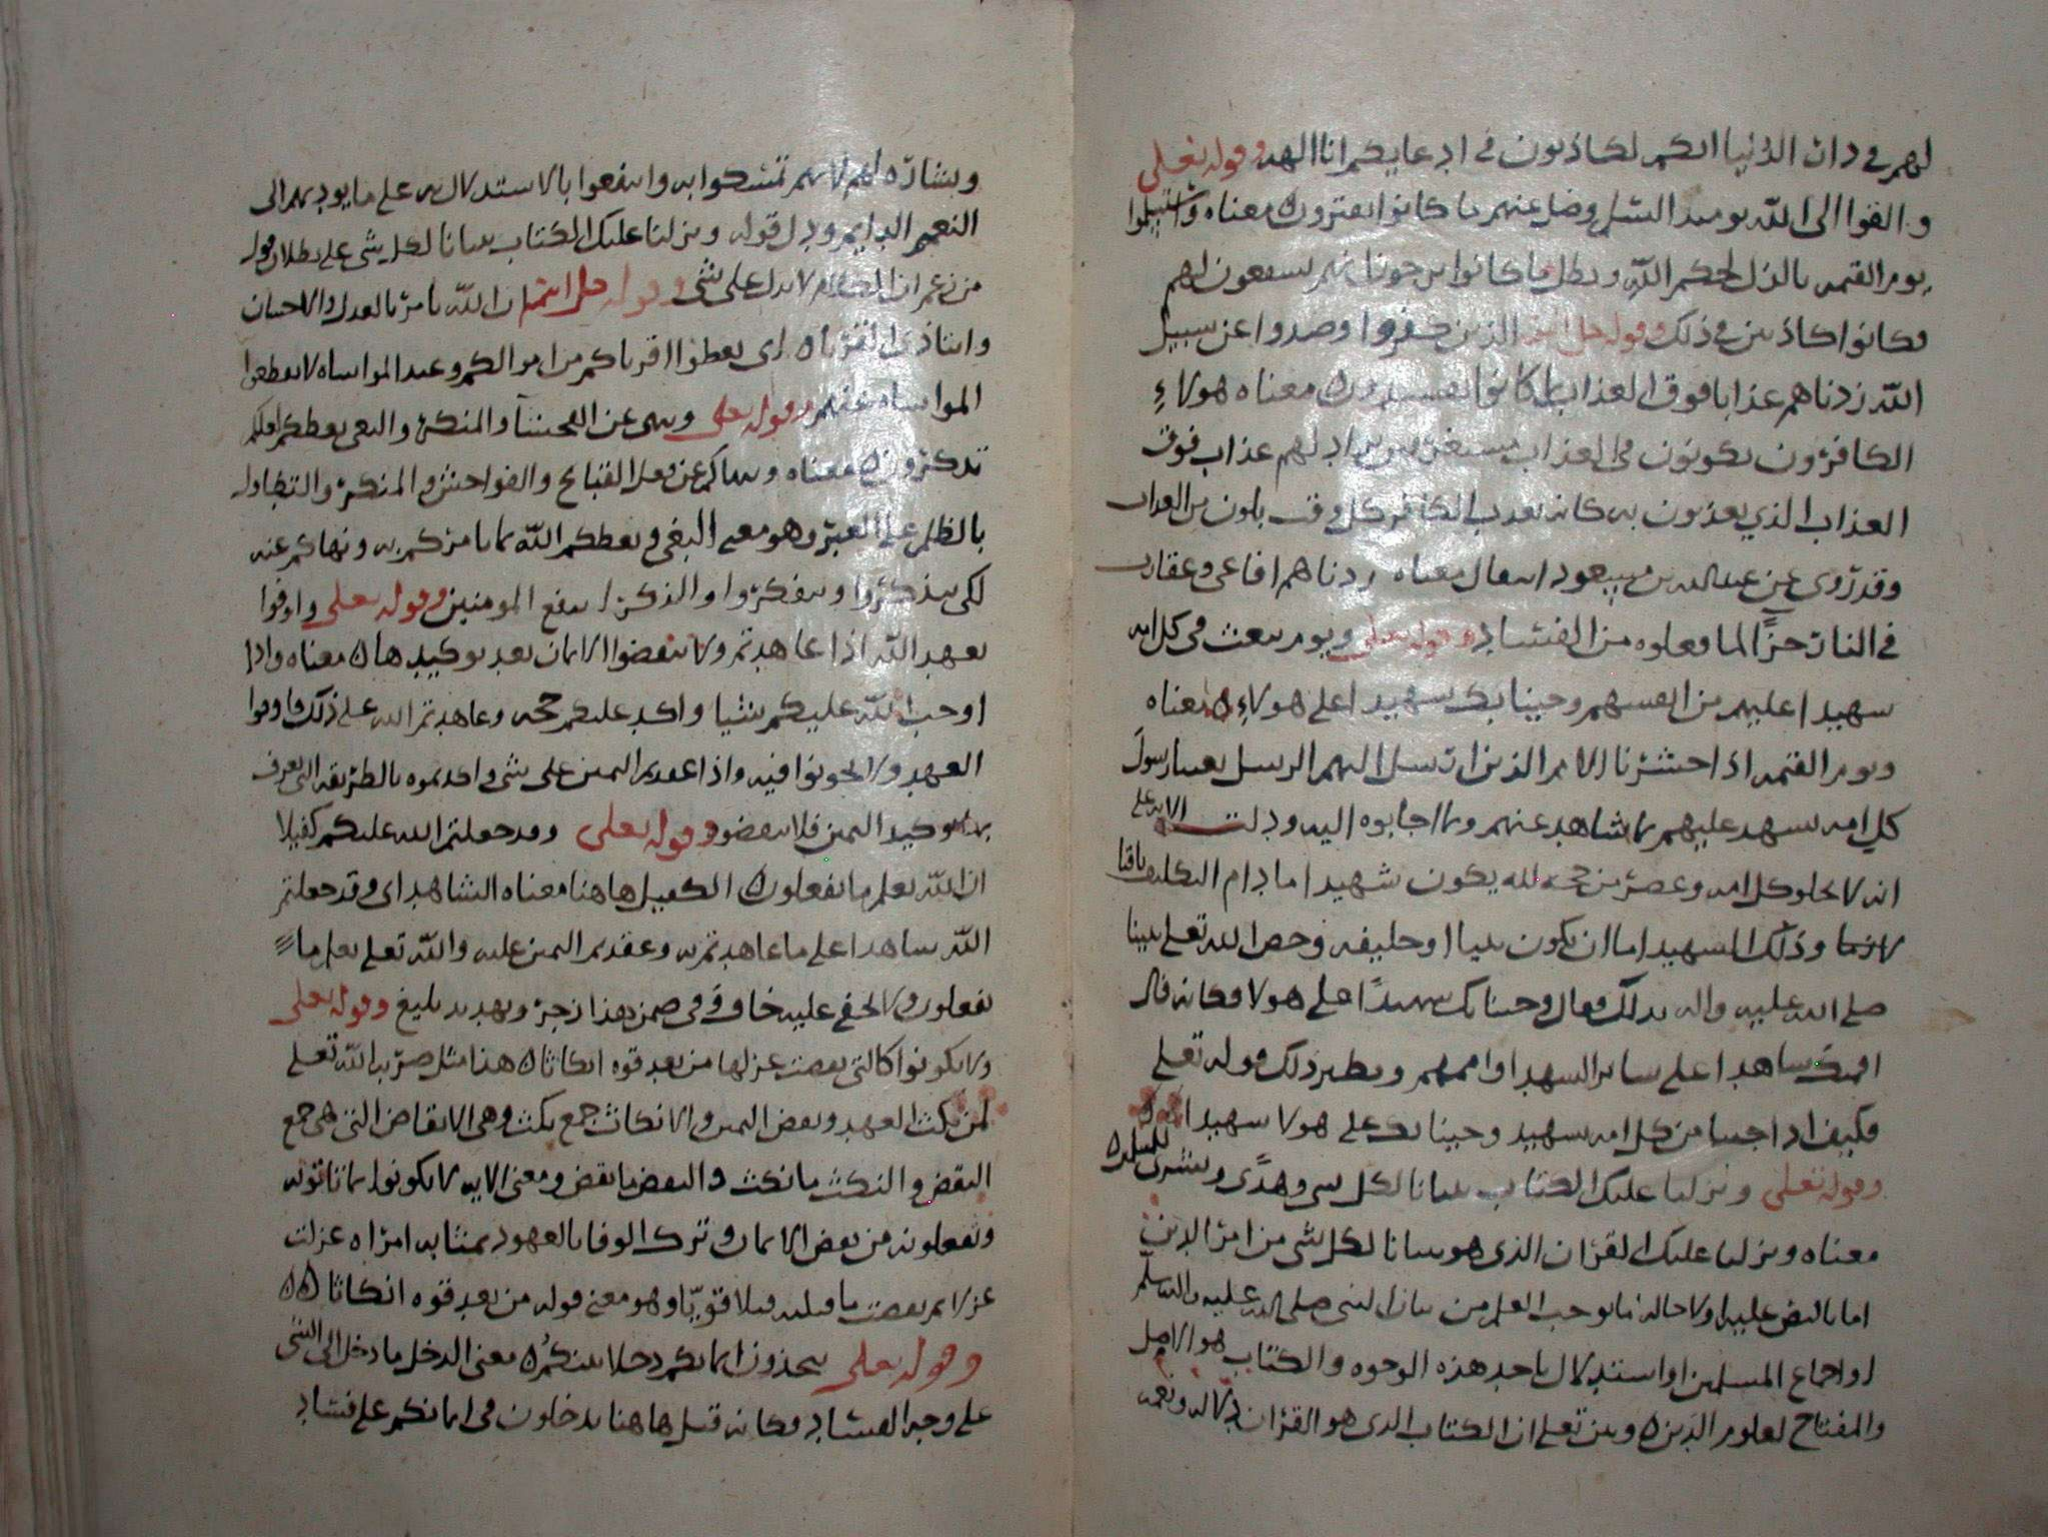 لهم في دار الدنيا انكم لكاذبون في ادعايكم انا الهه وقوله تعلى
والقوا الى الله يومئذ السلم وضل عنهم ما كانوا يفترون معناه واستسلموا
يوم القيمه بالذل لحكم الله وبطل ما كانوا يرجونا نهم يشفعون لهم
وكانوا كاذبين في ذلك وقوله جل اسمه الذين كفروا وصدوا عن سبيل
الله زدناهم عذابا فوق العذاب بما كانوا يفسدون معناه هولاءِ
الكافرون يكونون في العذاب يزاد لهم عذاب فوق
العذاب الذي يعذبون به كانه يعذب الكافر كل وقت بلون من العذاب
وقد روى عن عبد الله بن مسعود انه قال معناه زدناهم افاعي وعقارب
في النار جزًا لما فعلوه من الفساد وقوله تعلى ويوم نبعث في كل امه
شهيدا عليهم من انفسهم وجينا بك شهيدا على هولاءِ معناه
ويوم القيمه اذا حشرنا الامم الذين ارسل اليهم الرسل بعثنا رسول
كل امه يشهد عليهم بما شاهد عنهم وبما اجابوه اليه ودلت الايه على
انه لا يخلو كل امه وعصر من حجه لله يكون شهيدا ما دام التكليف باقيا
وذلك الشهيد اما ان يكون نبيا او خليفه وخص الله تعلى نبينا
صلى الله عليه واله بذلك فقال وجينا بك شهيدًا على هولا فكانه قال
شاهدا على ساير الشهدا واممهم ونظير ذلك قوله تعلى
فكيف اذا جينا من كل امه بشهيد وجينا بك على هولا شهيدا
وقوله تعلى ونزلنا عليك الكتاب تبيانا لكل شي وهدًى وبشرى للمسلمين
معناه ونزلنا عليك القران الذي هو بيانا لكل شي من امر الدين
اما بالنص عليه او احاله ما يوجب العلم من بيان النبي صلى الله عليه واله وسلم
او اجماع المسلمين او استدلال باحد هذه الوجوه والكتاب هو الاصل
والمفتاح لعلوم الدين وبين تعلى ان الكتاب الذي هو القران دلاله ونعمه
وبشاره لهم لانهم تمسكوا به وانتفعوا بالاستدلال به على ما يوديهم الى
النعيم الدايم ودل قوله ونزلنا عليك الكتاب تبيانا لكل شي على بطلان قول
من زعم ان الكلام لا يدل على شي وقوله جل اسمه ان الله يامر بالعدل والاحسان
وايتا ذي القربى اى يعطوا اقرباكم من اموالكم وعند المواساه لا يقطعوا
المواساه عنهم وقوله تعلى وينهى عن الفحشا والمنكر والبغي يعظكم لعلكم
تذكرون معناه وينهاكم عن فعل القبايح والفواحش والمنكر والتطاول
بالظلم على الغير وهو معنى البغي ويعظكم الله بما يامركم به وينهاكم عنه
لكي يتذكروا ويتفكروا والذكرى ينفع المومنين وقوله تعلى واوفوا
بعهد الله اذا عاهدتم ولا تنقضوا الايمان بعد توكيدها معناه واذا
اوجب الله عليكم شيا واكد عليكم حجه وعاهدتم الله على ذلك فاوفوا
العهد ولا تخونوا فيه واذا عقدتم اليمين على شي واكدتموه بالطريقه التي تعرف
بها توكيد اليمين فلا تنقضوا وقوله تعلى وقد جعلتم الله عليكم كفيلا
ان الله يعلم ما تفعلون الكفيل هاهنا معناه الشاهد اى وقد جعلتم
الله شاهدا على ما عاهدتم به وعقدتم اليمين عليه والله تعلى يعلم ما
تفعلون ولا يخفى عليه خاف وفي ضمن هذا زجر وتهديد بليغ وقوله تعلى
ولا تكونوا كالتي نقضت غزلها من بعد قوه انكاثا هذا مثل ضربه الله تعلى
لمن نكث العهد ونقض اليمين والانكاث جمع نكث وهي الانقاض التي هي جمع
النقض والنكث ما نكث والنقض ما نقض ومعنى الايه لا تكونوا بما تاتونه
وتفعلونه من نقض الايمان وترك الوفا بالعهود بمثابه امراه غزلت
غزلا ثم نقضت ما فتلته فتلا قويًا وهو معنى قوله من بعد قوه انكاثا
وقوله تعلى تتخذون ايمانكم دخلا بينكم معنى الدخل ما دخل الى الشي
على وجه الفساد فكانه قيل هاهنا تدخلون في ايمانكم على فساد